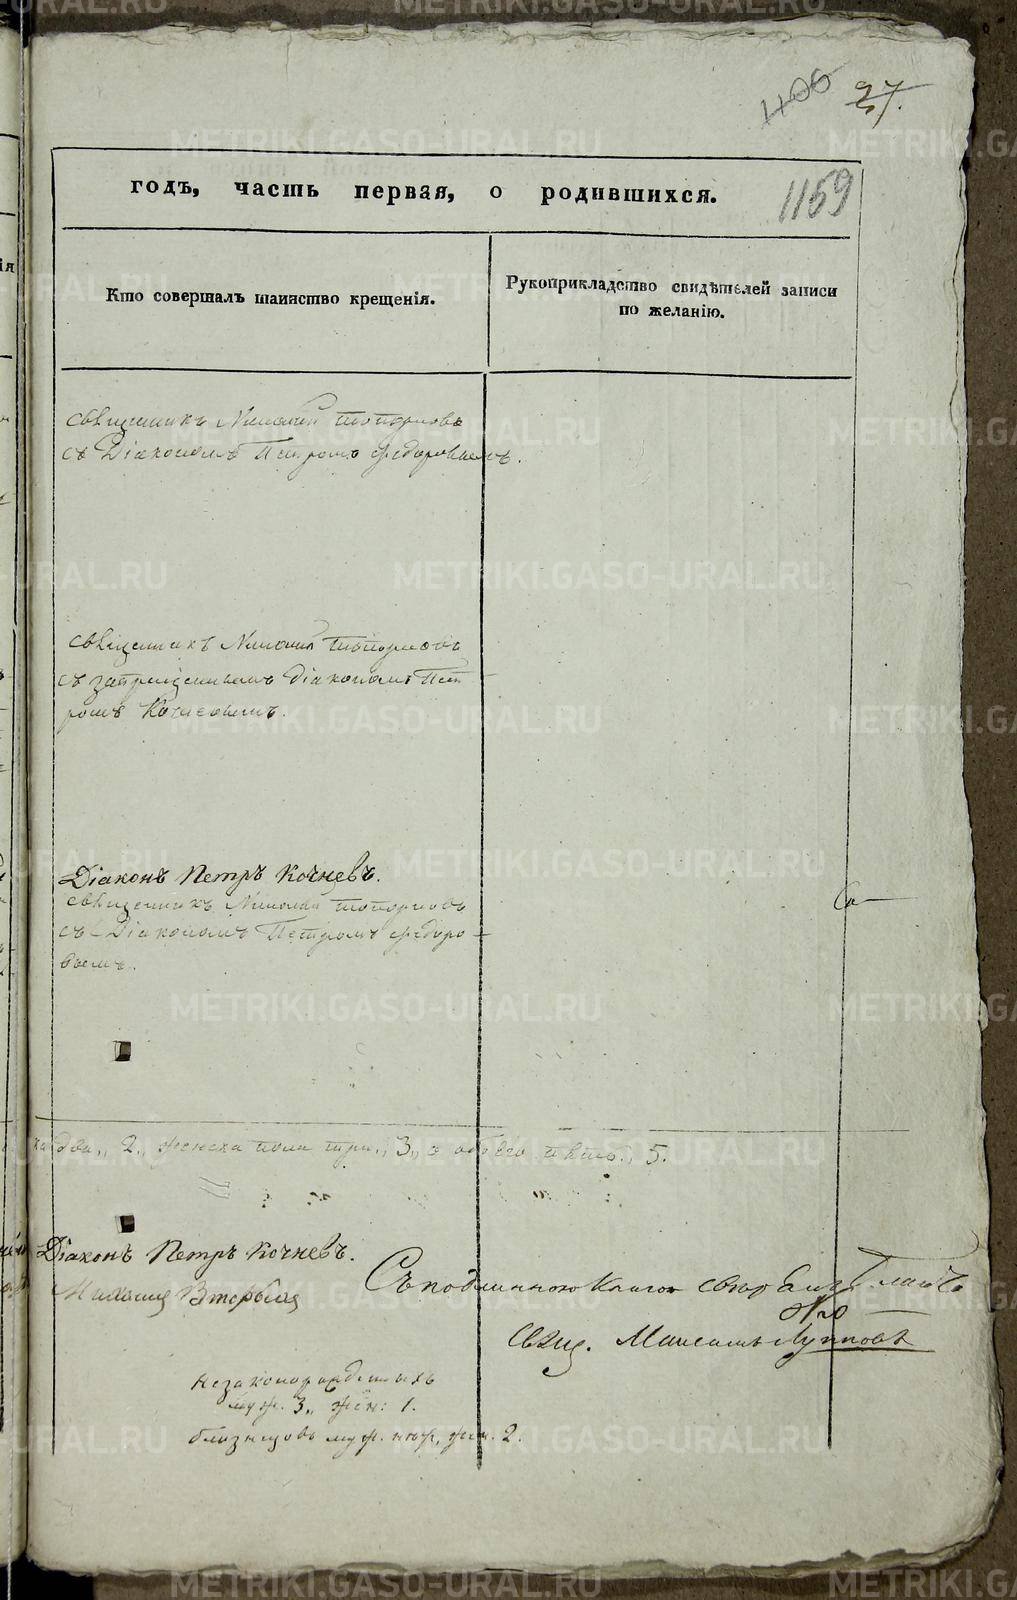 406 27.
годъ, часть первая, о родившихся.
1159
Кто совершалъ таинство крещенія.
Рукоприкладство свидѣтелей записи
по желанію.
священникъ Николай Топорковъ
съ Діакономъ Петромъ Федоровымъ.
священникъ Николай Топорковъ
съ запрещеннымъ діакономъ Пет
ромъ Кочневымъ.
Діаконъ Петръ Кочневъ.
священникъ Николай Топорковъ
съ Діакономъ Петромъ Федоро
вымъ.
Со
два „2„ женска пола три „3„ а обоего пять „5.
Діаконъ Петръ Кочневъ.
Вторыхъ
Съ подлинною Книгою
Свящ. Лупповъ
незаконорожденныхъ
муж. 3„ жен: 1.
близнецовъ муж. жен. 2.
METRIKI.GASO-URAL.RU